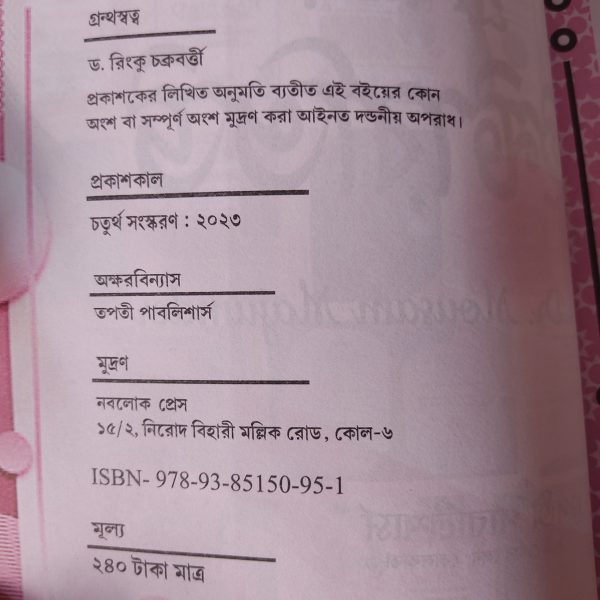 গ্রন্থস্বত্ব
ড. রিংকু চক্রবর্ত্তী
প্রকাশকের লিখিত অনুমতি ব্যতীত এই বইয়ের কোন
অংশ বা সম্পূর্ণ অংশ মুদ্রণ করা আইনত দন্ডনীয় অপরাধ।
প্রকাশকাল
চতুর্থ সংস্করণ : ২০২৩
অক্ষরবিন্যাস
তপতী পাবলিশার্স
মুদ্রণ
নবলোক প্রেস
১৫/২, নিরোদ বিহারী মল্লিক রোড, কোল-৬
ISBN- 978-93-85150-95-1
মূল্য
২৪০ টাকা মাত্র